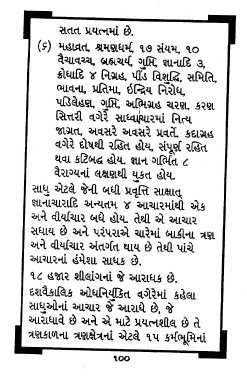 સતત પ્રયત્નમાં છે.
(૬) મહાવ્રત, શ્રમણધર્મ, ૧૭ સંયમ, ૧૦
વૈચાવચ્ચ, બ્રહ્મચર્ય, ગુપ્તિ, જ્ઞાનાદિ ૩,
ક્રોધાદિ ૪ નિગ્રહ, પીંડ વિશુદ્ધિ, સમિતિ,
ભાવના, પ્રતિમા, ઇન્દ્રિય નિરોધ,
પડિલેહણ, ગુપ્તિ, અભિગ્રહ ચરણ, કરણ
સિત્તરી વગેરે સાધ્વાચારમાં નિત્ય
જાગ્રત, અવસરે અવસરે પ્રવર્તે. કદાગ્રહ
વગેરે દોષથી રહિત હોય, સંપૂર્ણ રહિત
થવા કટિબદ્ધ હોય. જ્ઞાન ગર્ભિત ૮
વૈરાગ્યનાં લક્ષણથી યુકત હોય.
સાધુ એટલે જેની બધી પ્રવૃત્તિ સાક્ષાત્
જ્ઞાનાચારાદિ અન્યતમ ૪ આચારમાંથી એક
અને વીર્યાચાર બધે હોય. તેથી એ આચાર
સધાય છે અને પરંપરાએ ચારેમાં બાકીના ત્રણ
અને વીર્યાચાર અંતર્ગત થાય છે તેથી પાંચે
આચારનાં હંમેશા સાધક છે.
૧૮ હજાર શીલાંગનાં જે આરાધક છે.
દશવૈકાલિક ઓઘનિર્યુક્તિ વગેરેમાં કહેલા
સાધુઓનાં આચાર જે આરાધે છે, જે
આરાધાવે છે અને એ માટે પ્રયત્નશીલ છે તે
ત્રણકાળના ત્રણક્ષેત્રનાં એટલે ૧૫ કર્મભૂમિનાં
૧૦૦